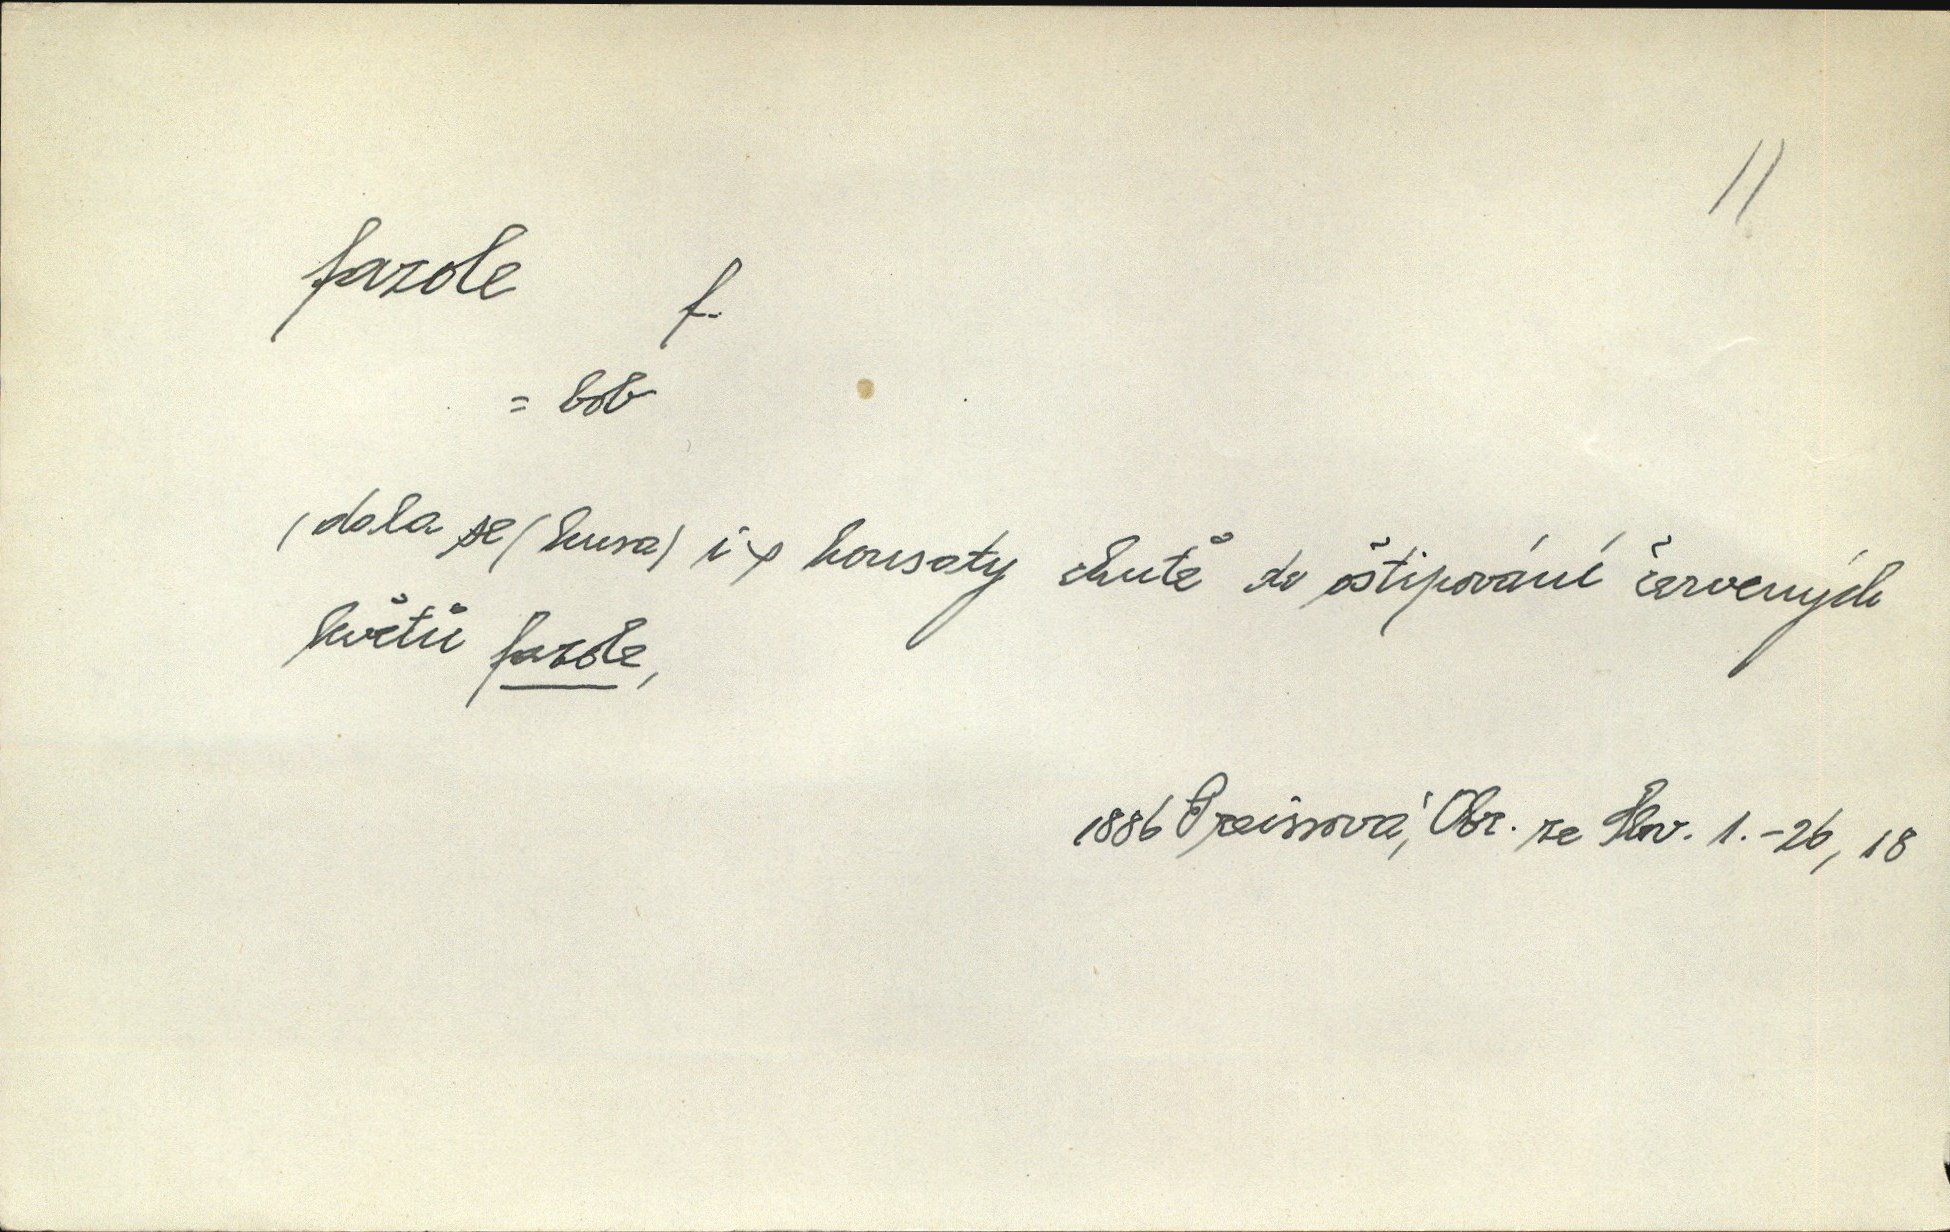 11
fazole f.
= bob
, dala se (husa) i s housaty chutě do oštipování červených
květů fazole,
1886 Preissová, Obr. ze Slov. 1.-26, 18